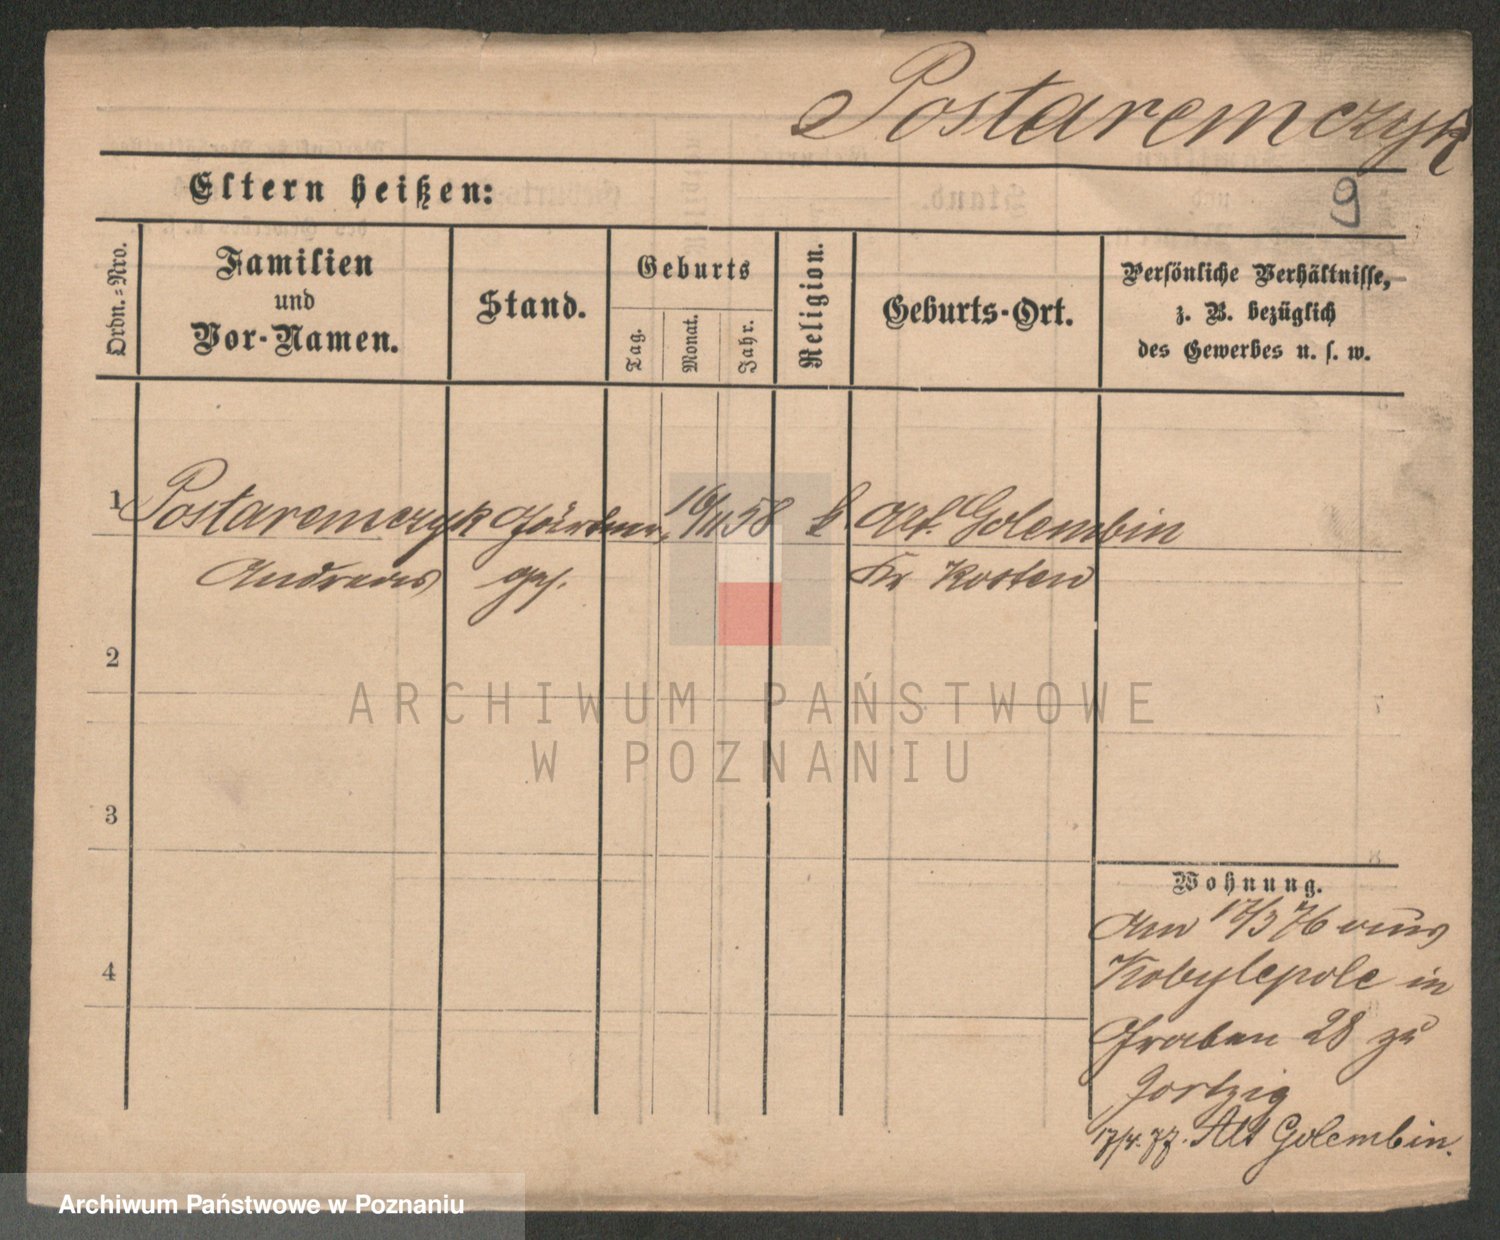 Postaremczyk
9
Eltern heißen:
Ordn.-Nro.
Familien
und
Vor-Namen.
Stand.
Geburts
Tag.
Monat.
Jahr.
Religion.
Geburts-Ort.
Persönliche Verhältnisse,
z. B. bezüglich
des Gewerbes u. s. w.
1 Postaremczyk Gärtner 16/11 58 k Alt. Golembin
Andreas Kr Kosten
2
ARCHIWUM PAŃSTWOWE
W POZNANIU
3
Wohnung.
Am 17/3 76 aus
Kobylepole in
4
Graben 28 zu
17/4. 77. Alt Golembin.
Archiwum Państwowe w Poznaniu